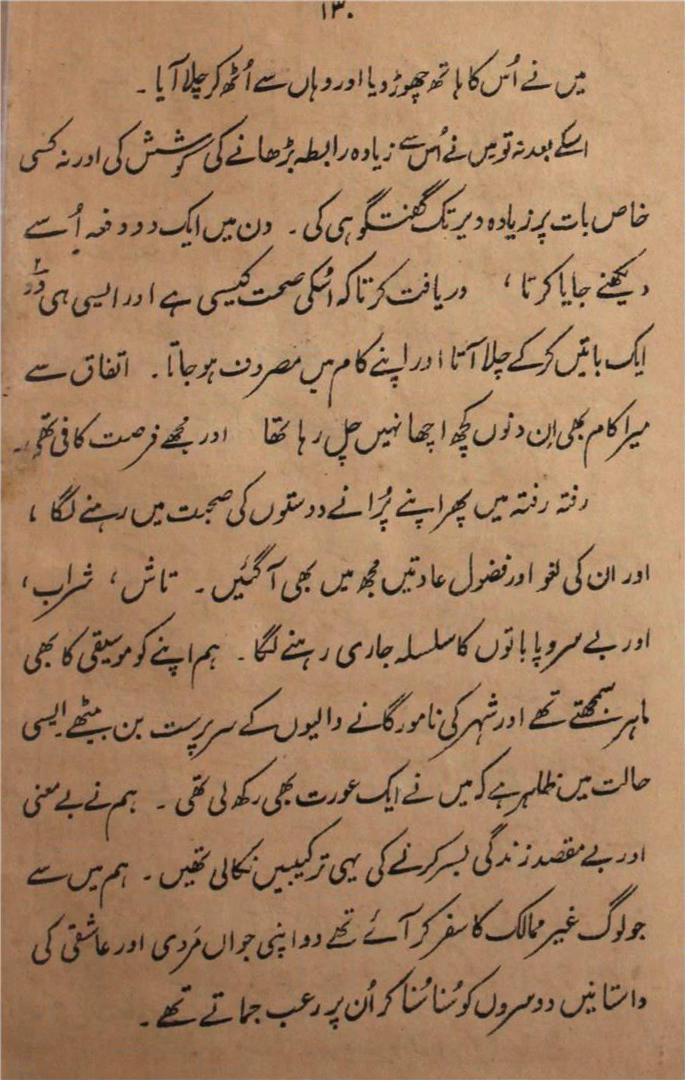 ۱۳۰
میں نے اُس کا ہاتھ چھوڑ دیا اور وہاں سے اُٹھ کر چلا آیا ۔
اسکے بعد نہ تو میں نے اُس سے زیادہ رابطہ بڑھانے کی کوشش کی اور نہ کسی
خاص بات پر زیادہ دیر تک گفتگو ہی کی ۔ دن میں ایک دو دفعہ اُسے
دیکھنے جایا کرتا ، دریافت کرتا کہ اُسکی صحت کیسی ہے اور ایسی ہی دو
ایک باتیں کر کے چلا آتا اور اپنے کام میں مصروف ہو جاتا ۔ اتفاق سے
میرا کام بھی اِن دنوں کچھ اچھا نہیں چل رہا تھا اور مجھے فرصت کافی تھی ۔
رفتہ رفتہ میں پھر اپنے پُرانے دوستوں کی صحبت میں رہنے لگا ،
اور ان کی لغو اور فضول عادتیں مجھ میں بھی آ گئیں ۔ تاش ، شراب ،
اور بے سروپا باتوں کا سلسلہ جاری رہنے لگا ۔ ہم اپنے کو موسیقی کا بھی
ماہر سمجھتے تھے اور شہر کی نامور گانے والیوں کے سرپرست بن بیٹھے ایسی
حالت میں ظاہر ہے کہ میں نے ایک عورت بھی رکھ لی تھی ۔ ہم نے بے معنی
اور بے مقصد زندگی بسر کرنے کی یہی ترکیبیں نکالی تھیں ۔ ہم میں سے
جو لوگ غیر ممالک کا سفر کر آئے تھے وہ اپنی جواں مَردی اور عاشقی کی
داستانیں دوسروں کو سُنا سُنا کر اُن پر رعب جماتے تھے ۔